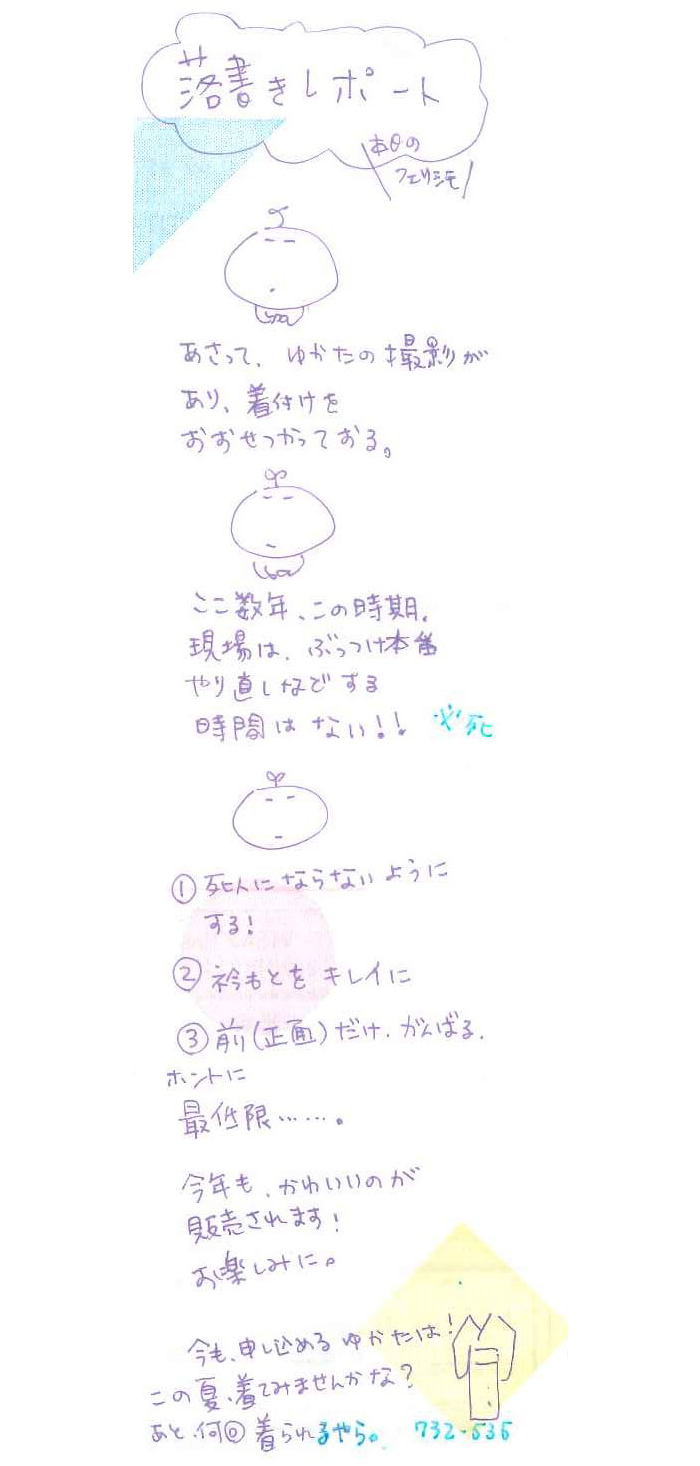 落書きレポート
本日の
フェリシモ
あさって、ゆかたの撮影が
あり、着付けを
おおせつかっておる。
ここ数年、この時期、
現場は、ぶっつけ本番
やり直しなどする
時間はない!! 必死
① 死人にならないように
する!
② 衿もとをキレイに
③ 前(正面)だけ、がんばる、
ホントに
最低限……。
今年も、かわいいのが
販売されます!
お楽しみに。
今も、申し込めるゆかたは!
この夏、着てみませんかな?
あと、何回着られるやら。 732-535